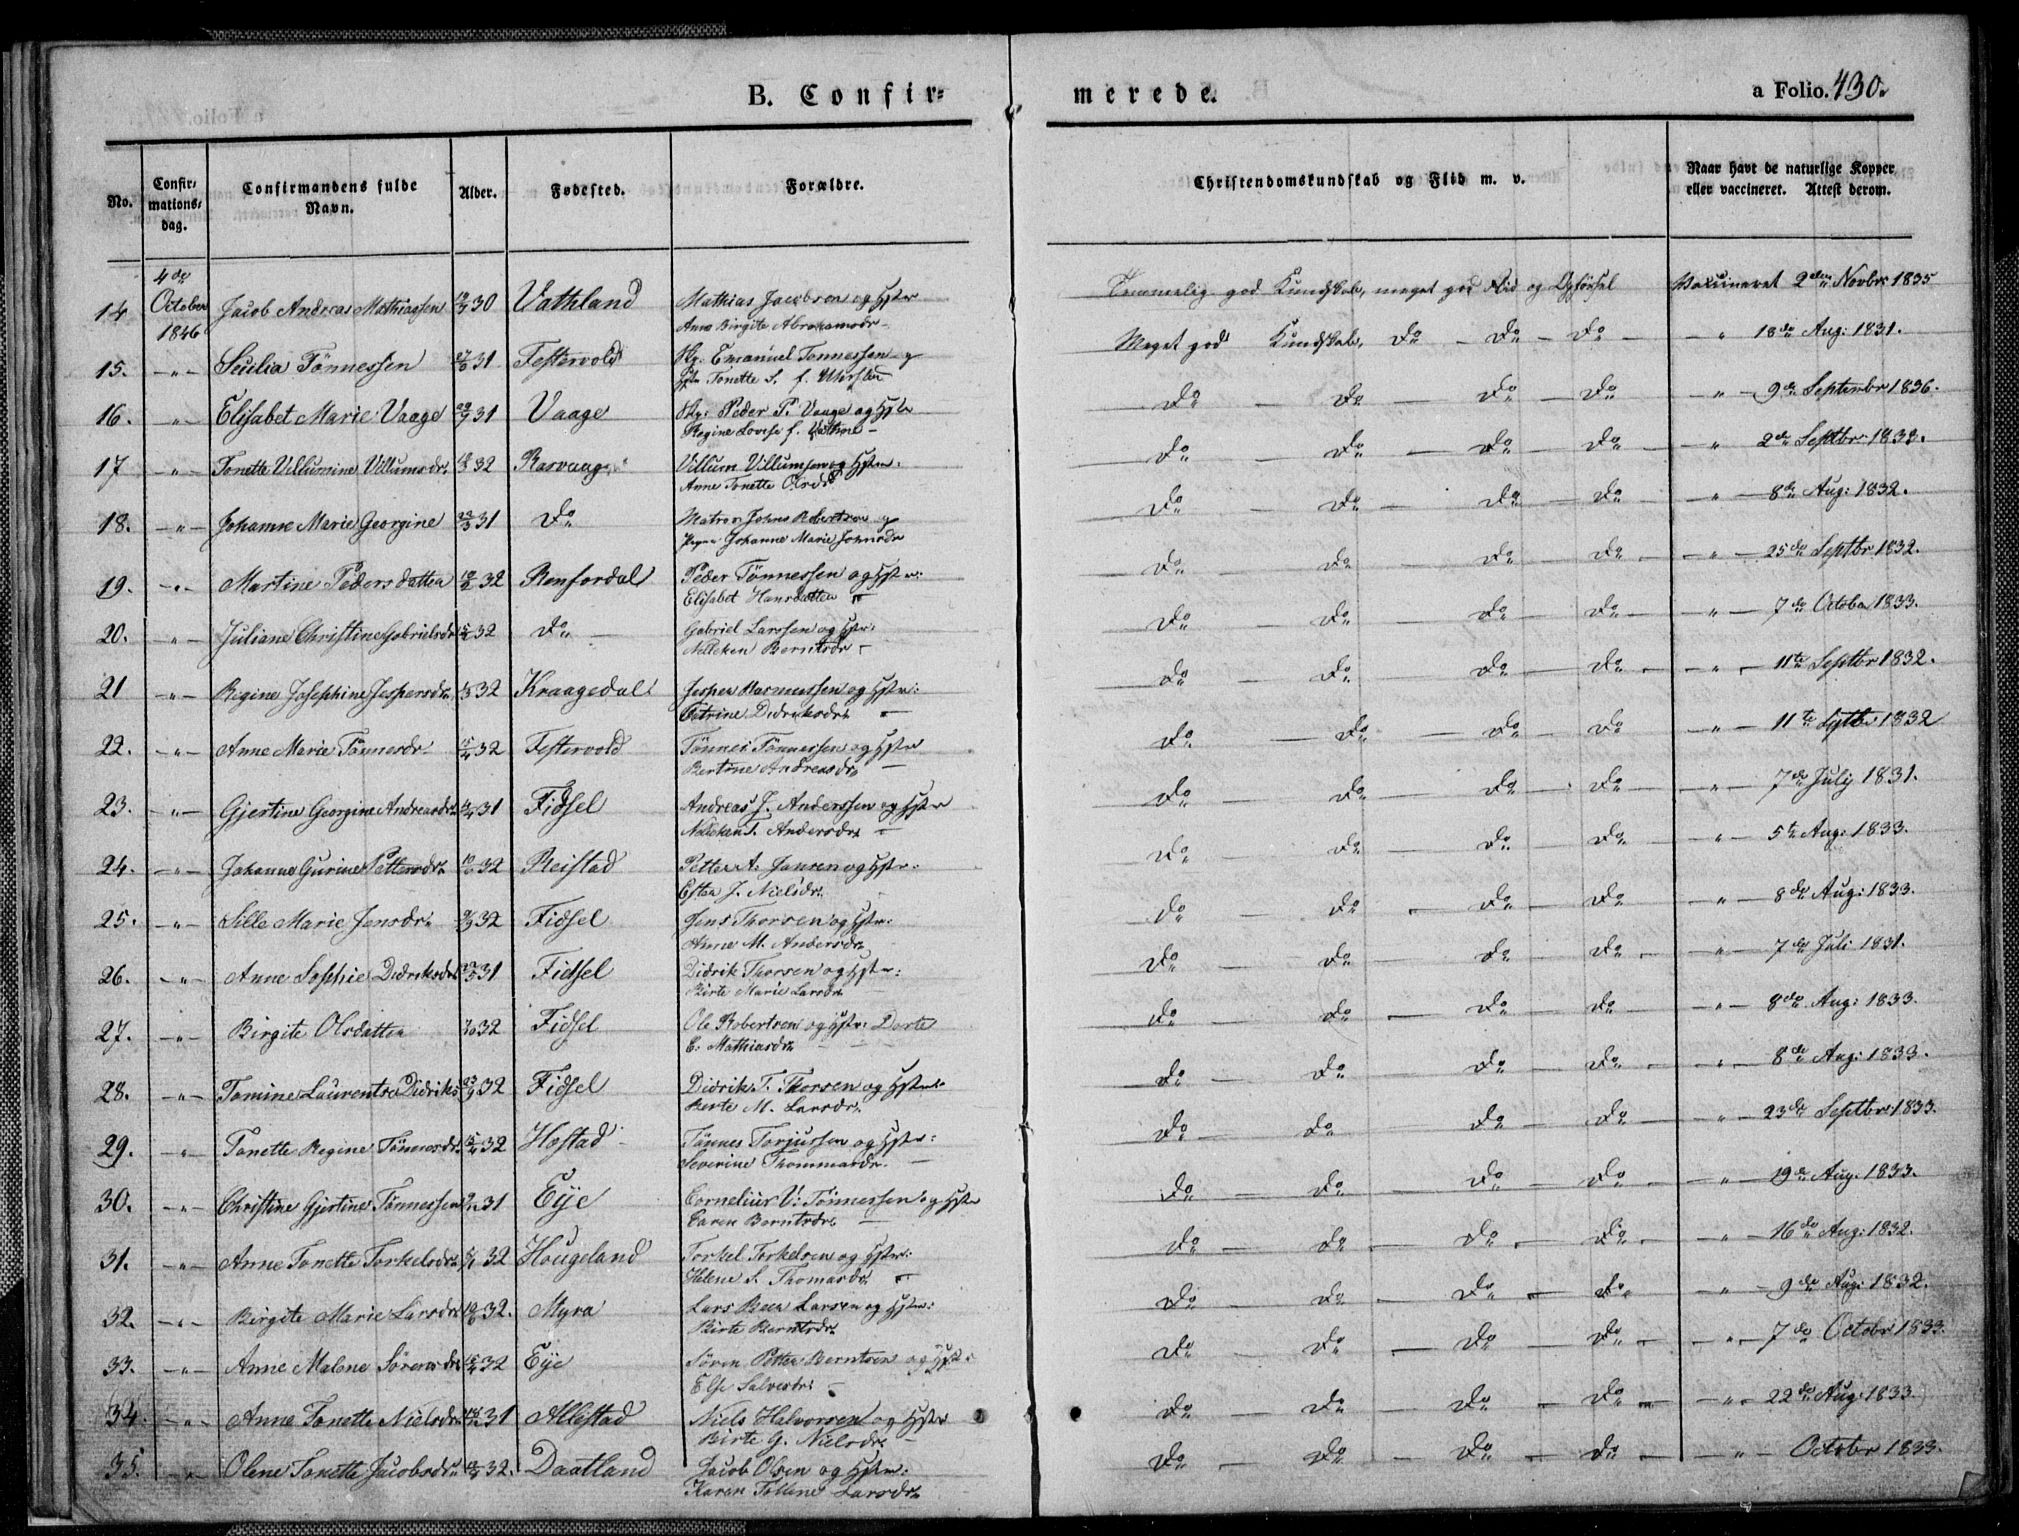 B. Confir=
merede.
a Folio. 430.
No.
Confir=
mations=
dag.
Confirmandens fulde
Navn.
Alder.
Fødested.
Forældre.
Christendomskundskab og Flid m. v.
Naar havt de naturlige Kopper
eller vaccineret. Attest derom.
4de
October
1846
14 Jacob Andreas Mathiassen 30 Vathland Mathias Jacobsen og Hstr
Anne Birgite Abrahamsdr
Temmelig god Kundskab, meget god Flid og Opførsel Vaccineret 2den Novbr 1835
15. — " — Secilia Tönnessen 31 Festervold Emanuel Tonnessen og
Tonette S. f.
Meget god Kundskab, do — do — do — " 18de Aug: 1831.
16. — " — Elisabet Marie Vaage 31 Vaage Peder P. Vaage og Hstr
Regine Lovise f.
do — do — do — do — " — 9de Septenbr 1836.
17 — " — Tonette Villumine Villumsdr 32 Rasvaag Villum Villumsen og Hstr:
Anne Tonette Olsdr
do — do — do — do — " 2de Septbr 1833.
18. — " — Johanne Marie Georgine 31 do Johns Robertsen og
Johanne Marie Johnsdr
do — do — do — do — " — 8de Aug: 1832.
19. — " — Martine Pedersdatter 32 Renfordal Peder Tönnessen og Hstr:
Elisabet Hansdatter
do — do — do — do — " — 25de Septbr 1832.
20. — " — Juliane Christine Gabrielsdr 32 do — Gabriel Larssen og Hstr:
Nilleken Berntsdr —
do — do — do — do — " — 7de Octobr 1833.
21 — " — Regine Josephine Jespersdr 32 Kraagedal Jesper Rasmussen og Hstr:
Catrine Didriksdr
do — do — do — do — " — 11te Septbr 1832.
22. — " — Anne Marie Tönnesdr 32 Festervold Tönnes Tönnessen og Hstr
Bertine Andreasdr —
do — do — do — do — " — 11te Septbr 1832
23. — " — Gjertine Georgine Andreasdr 31 Fidsel Andreas J. Anderssen og Hstr
Nilleken T. Andersdr —
do — do — do — do — " — 7de July 1831.
24. — " — Johanne Gurine Pettersdr 32 Reistad Petter A. Jansen og Hstr:
Ester J. Nielsdr.
do — do — do — do — " — 5te Aug: 1833.
25. — " — Sille Marie Jensdr 32 Fidsel Jens Thorsen og Hstr:
Anne M. Andersdr
do — do — do — do — " — 8de Aug: 1833.
26. — " — Anne Sophie Didriksdr 31 Fidsel Didrik Thorsen og Hstr:
Birte Marie Larsdr
do — do — do — do — " — 7de Juli 1831.
27. — " — Birgite Olsdatter 32 Fidsel Ole Robertsen og Hstr: Dorte
E. Mathiasdr
do — do — do — do — " — 8de Aug: 1833.
28. — " — Tomine Laurentse Didriks 32 Fidsel Didrik T. Thorsen og Hstr:
Berte M. Larsdr.
do — do — do — do — " — 8de Aug: 1833.
29. — " — Tonette Regine Tönnesdr 32 Hæstad Tönnes Torjussen og Hstr:
Severine Thommasdr. —
do — do — do — do — " — 23de Septbr 1833.
30. — " — Christine Gjertine Tönnessen 31 Eije Cornelius V. Tönnessen og Hstr
Caren Berntsdr. —
do — do — do — do — " — 19de Aug. 1833.
31. — " — Anne Tonette Torkelsdr 32 Hougeland Torkel Torkelsen og Hstr:
Helene S. Thomasdr
do — do — do — do — " — 16de Aug: 1832.
32. — " — Birgite Marie Larsdr 32. Myra Lars Larsen og Hstr:
Birte Berntsdr
do — do — do — do — " — 9de Aug: 1832.
33. — " — Anne Malene Sörensdr 32 Eije Sören Petter Berntsen og Hstr:
Else
do — do — do — do — " — 7de Octobr 1833.
34. — " — Anne Tonette Nielsdr 31 Allestad Niels Halvorsen og Hstr
Birte G. Nielsdr. —
do — do — do — do — " — 22de Aug: 1833.
35. — " — Olene Tonette Jacobsdr 32. Daatland Jacob Olsen og Hstr:
Karen Larsdr
do — do — do — do — " — Octobr 1833.